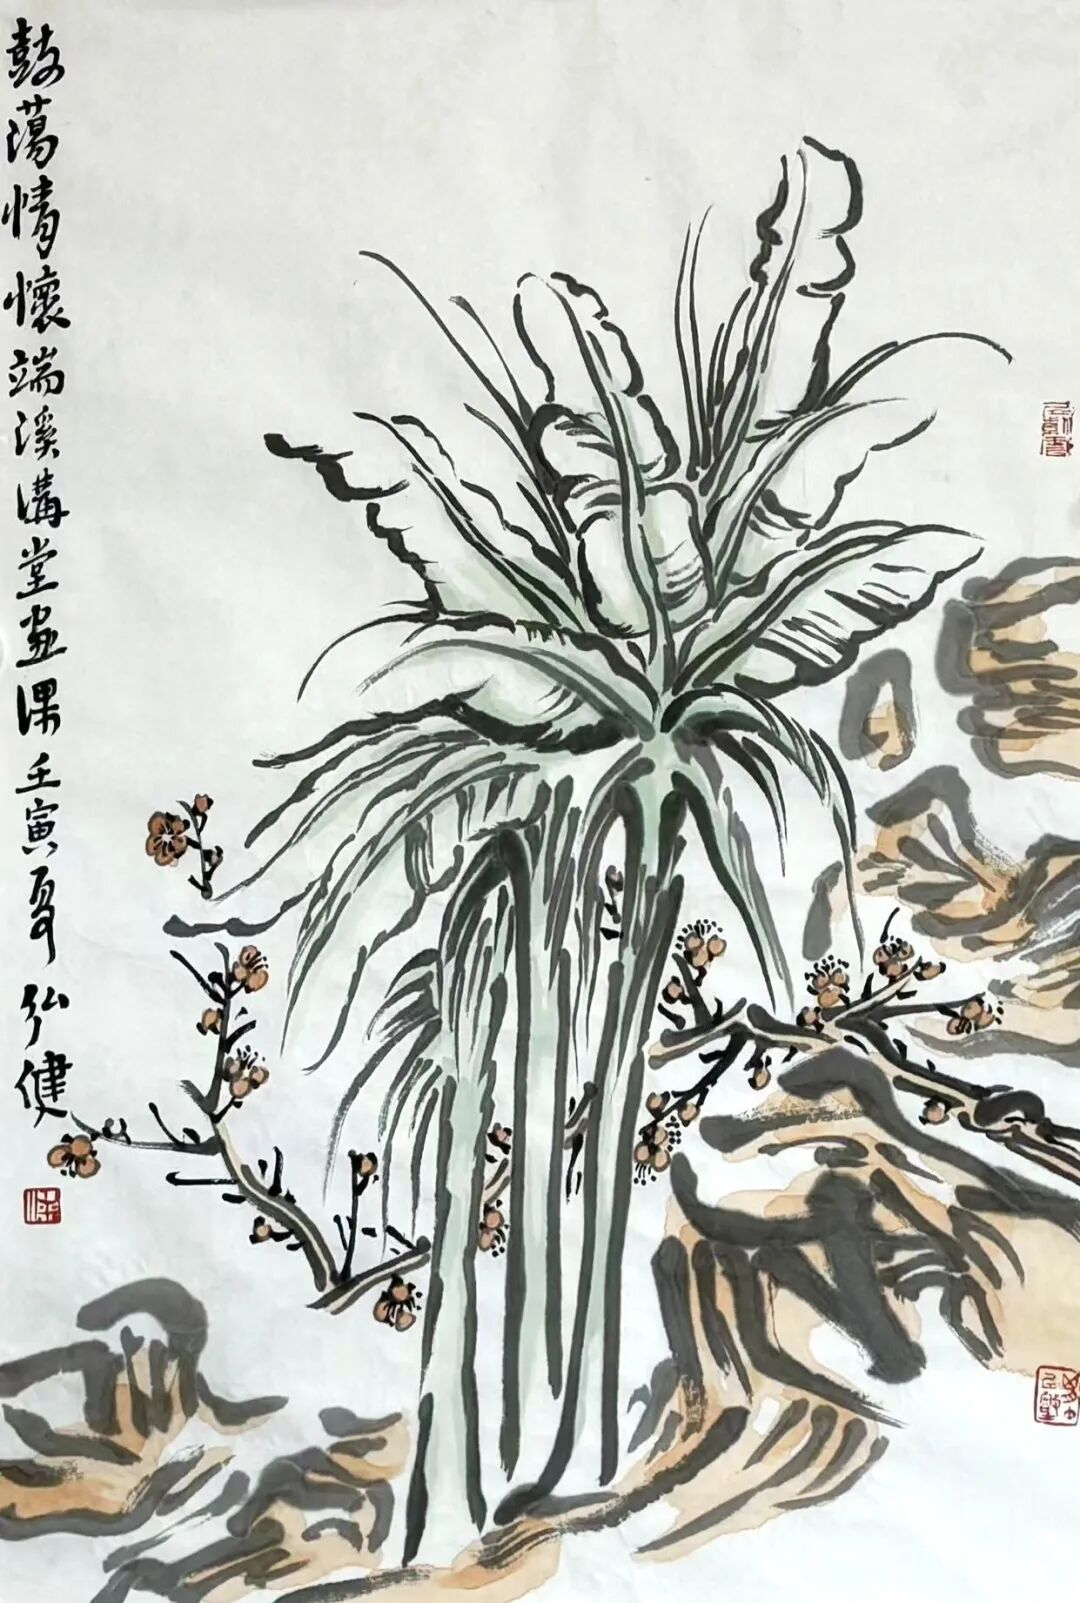 鼓荡情懷端溪溝堂畫課壬寅夏弘健